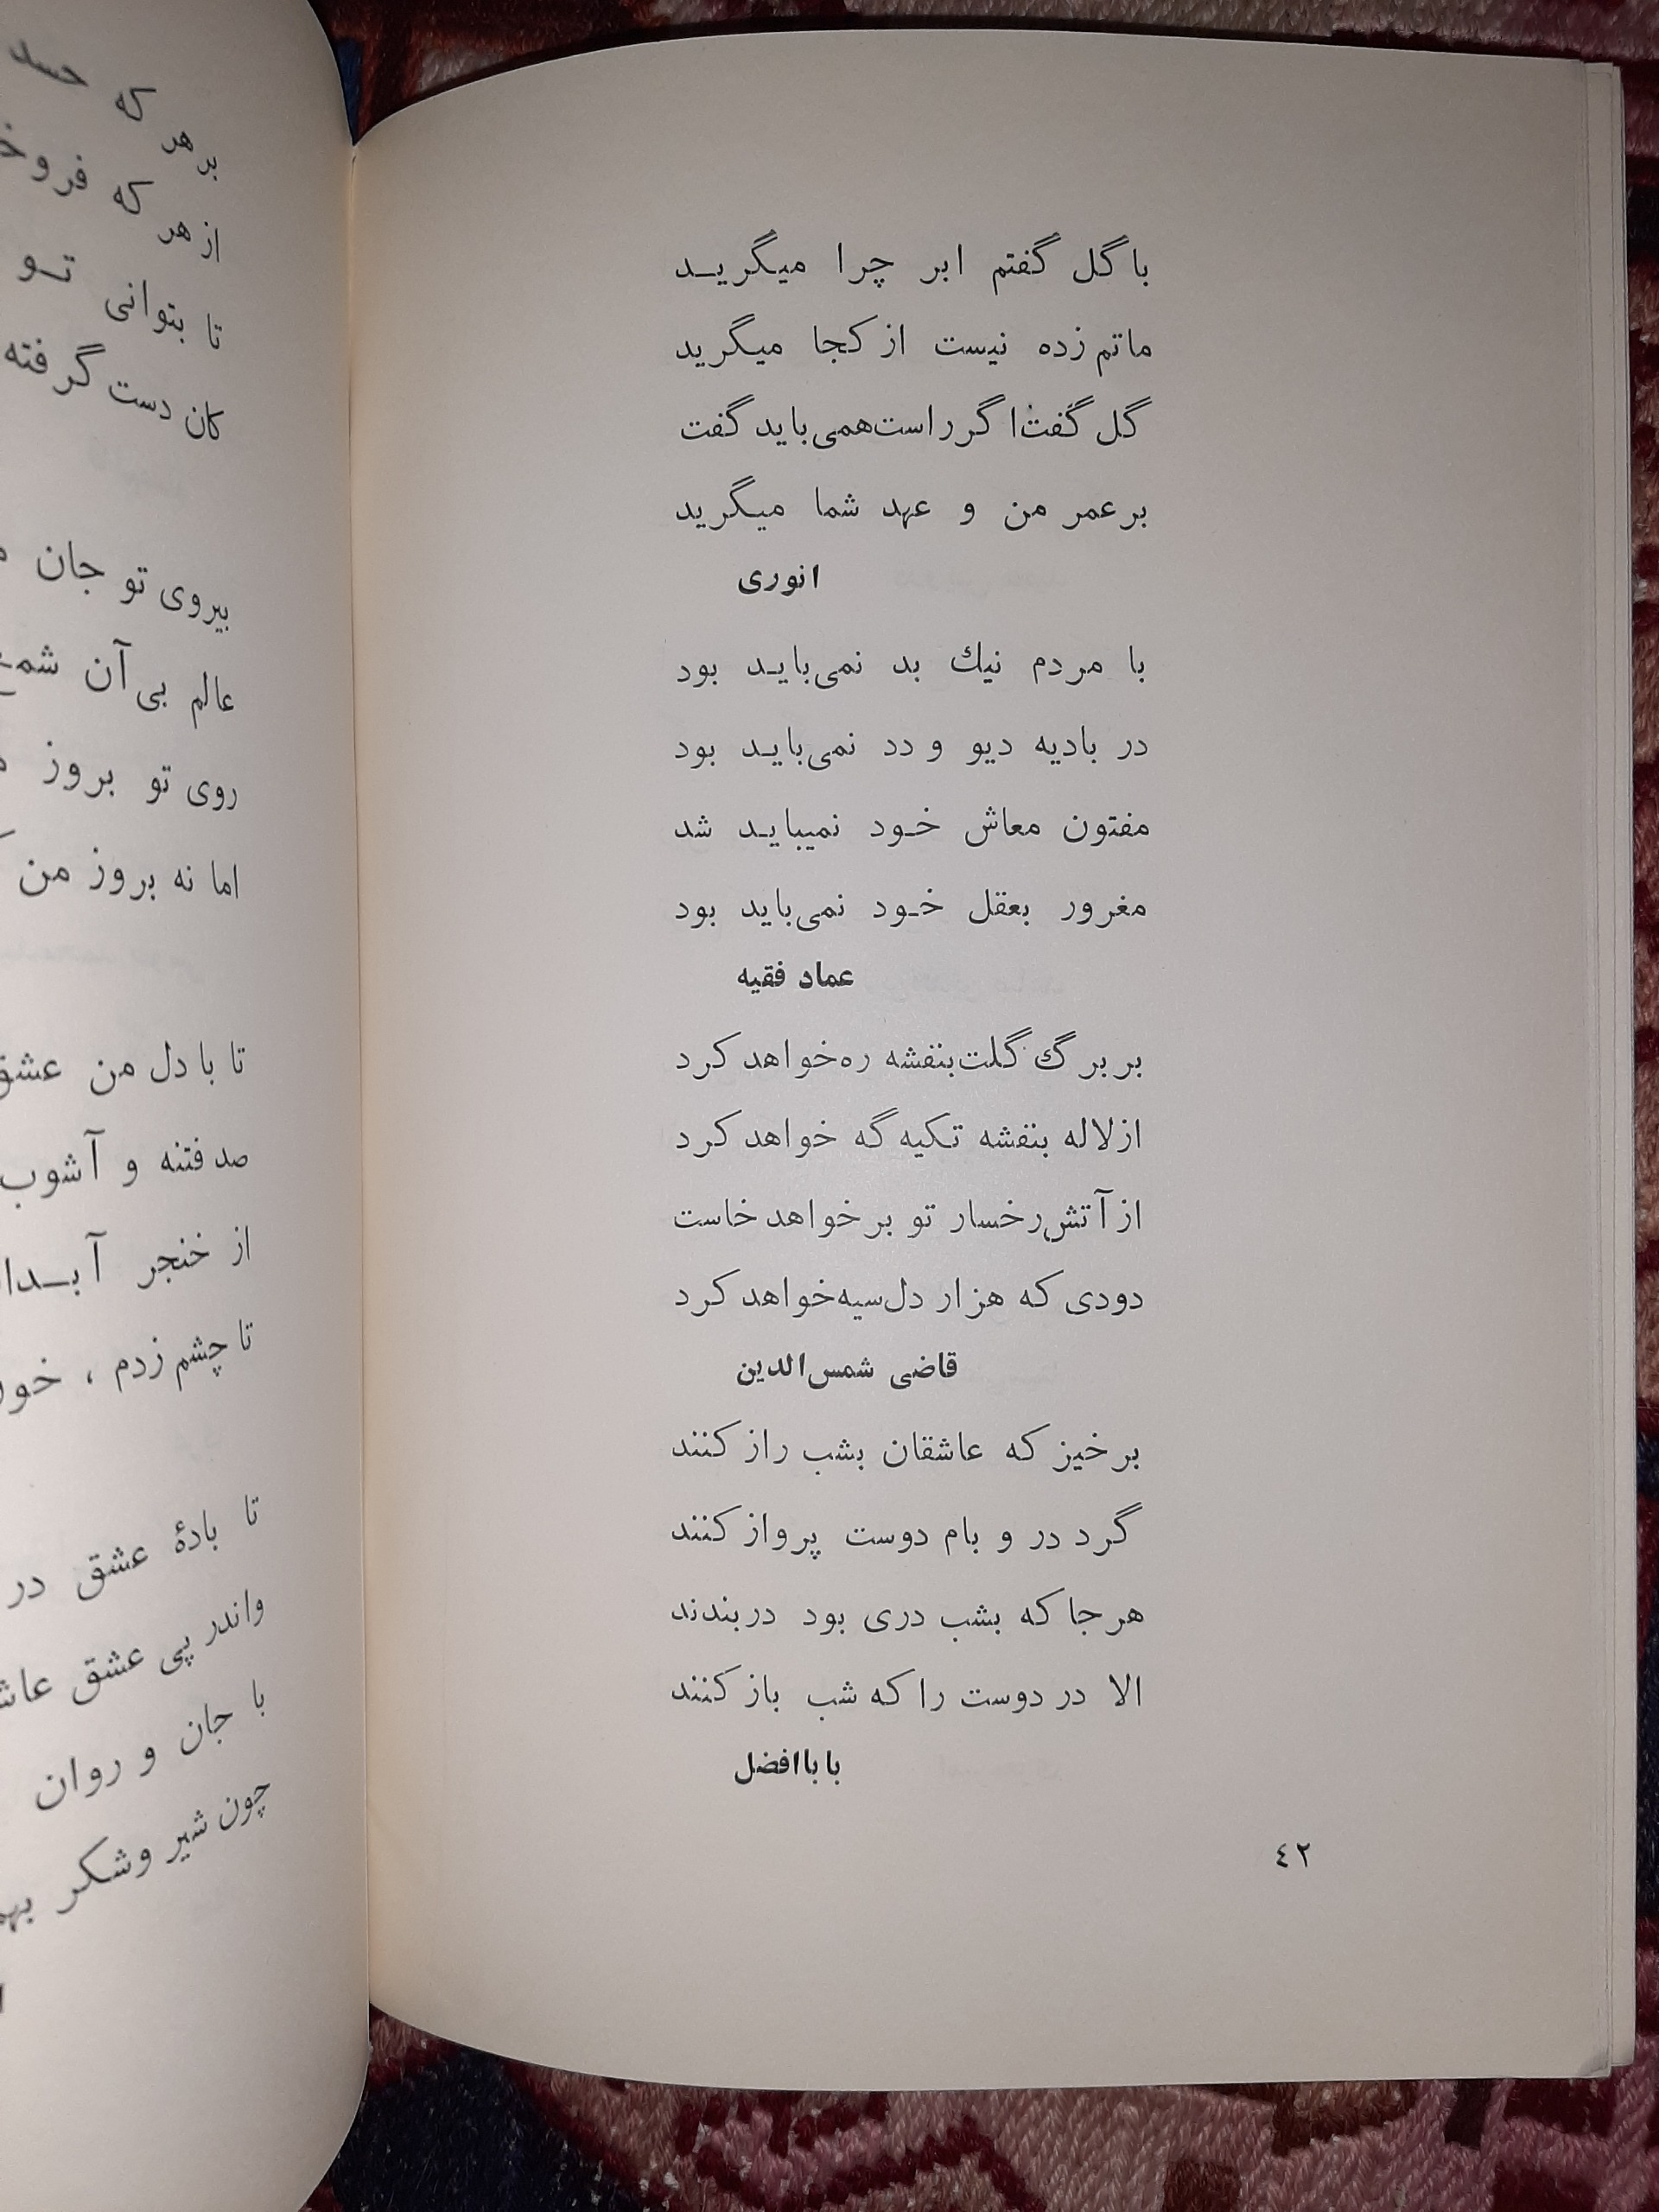 با گل گفتم ابر چرا میگریــد
ماتم زده نیست از کجا میگرید
گل گفت اگر راست همی باید گفت
بر عمر من و عهد شما میگرید
انوری
با مردم نیك بد نمی‌بایـد بود
در بادیه دیو و دد نمی‌بایـد بود
مفتون معاش خـود نمیبایـد شد
مغرور بعقل خـود نمی‌باید بود
عماد فقیه
بر برگ گلت بنفشه ره خواهد کرد
از لاله بنفشه تـکیه گه خواهد کرد
از آتش رخسار تو بر خواهد خاست
دودی که هزار دل سیه خواهد کرد
قاضی شمس‌الدین
بر خیز که عاشقان بشب راز کنند
گرد در و بام دوست پرواز کنند
هر جا که بشب دری بود دربندند
الا در دوست را که شب باز کنند
بابا افضل
٤٢
بر هر که حسد
از هر که
تا بتوانی تـو
کان دست گرفته
بیروی تو جان
عالم بی آن شمع
روی تو بروز
اما نه بروز من
تا با دل من عشق
صد فتنه و آشوب
از خنجر
تا چشم زدم ،
تا بادهٔ عشق در
واندر پی عشق
با جان و روان
چون شیر وشکر